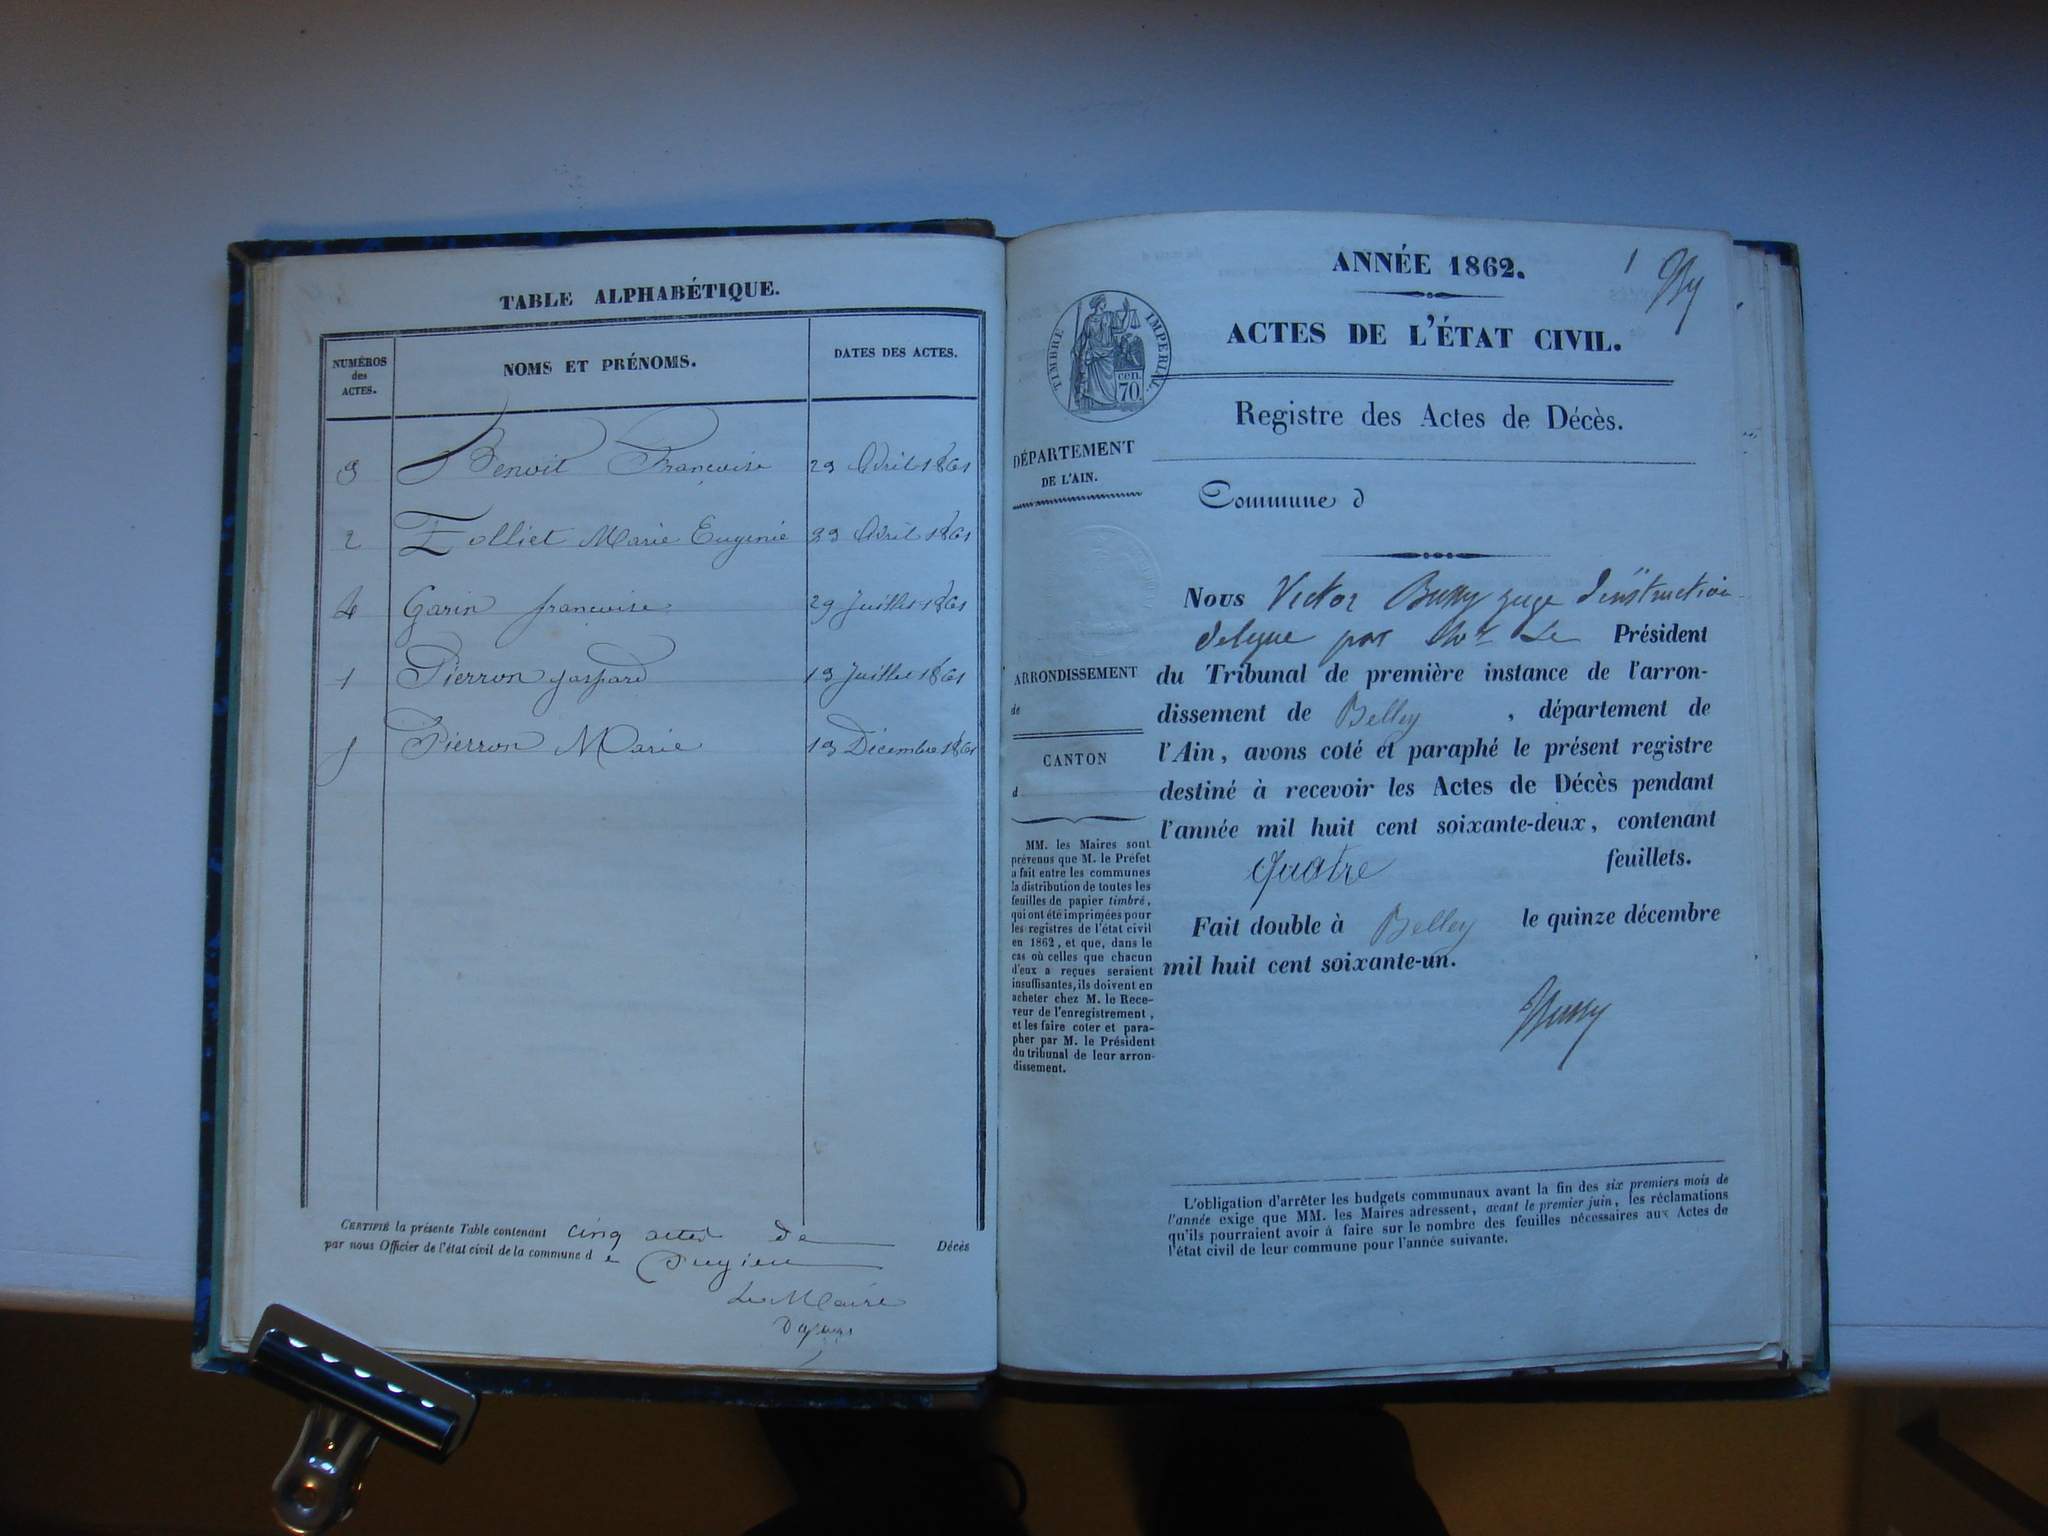 TABLE ALPHABÉTIQUE.
NUMÉROS des ACTES. NOMS ET PRÉNOMS. DATES DES ACTES.
3 Benoit Françoise 29 Avril 1861
2 Folliet Marie Eugenie 29 Avril 1861
4 Garin françoise 29 Juillet 1861
1 Pierron gaspard 19 Juillet 1861
5 Pierron Marie 19 Décembre 1861
CERTIFIÉ la présente Table contenant cinq actes de Décès
par nous Officier de l'état civil de la commune de Pugieu
Le Maire
ANNÉE 1862.
1
ACTES DE L'ÉTAT CIVIL.
TIMBRE IMPERIAL.
cen.
70.
Registre des Actes de Décès.
DÉPARTEMENT
DE L'AIN.
Commune d
Nous Victor Bussy juge d'instruction
delegue par Mr Le Président
du Tribunal de première instance de l'arron-
dissement de Belley, département de
l'Ain, avons coté et paraphé le présent registre
destiné à recevoir les Actes de Décès pendant
l'année mil huit cent soixante-deux, contenant
quatre feuillets.
Fait double à Belley le quinze décembre
mil huit cent soixante-un.
Bussy
ARRONDISSEMENT
de
CANTON
d
MM. les Maires sont
prévenus que M. le Préfet
a fait entre les communes
la distribution de toutes les
feuilles de papier timbré,
qui ont été imprimées pour
les registres de l'état civil
en 1862, et que, dans le
cas où celles que chacun
d'eux a reçues seraient
insuffisantes, ils doivent en
acheter chez M. le Rece-
veur de l'enregistrement,
et les faire coter et para-
pher par M. le Président
du tribunal de leur arron-
dissement.
L'obligation d'arrêter les budgets communaux avant la fin des six premiers mois de
l'année exige que MM. les Maires adressent, avant le premier juin, les réclamations
qu'ils pourraient avoir à faire sur le nombre des feuilles nécessaires aux Actes de
l'état civil de leur commune pour l'année suivante.